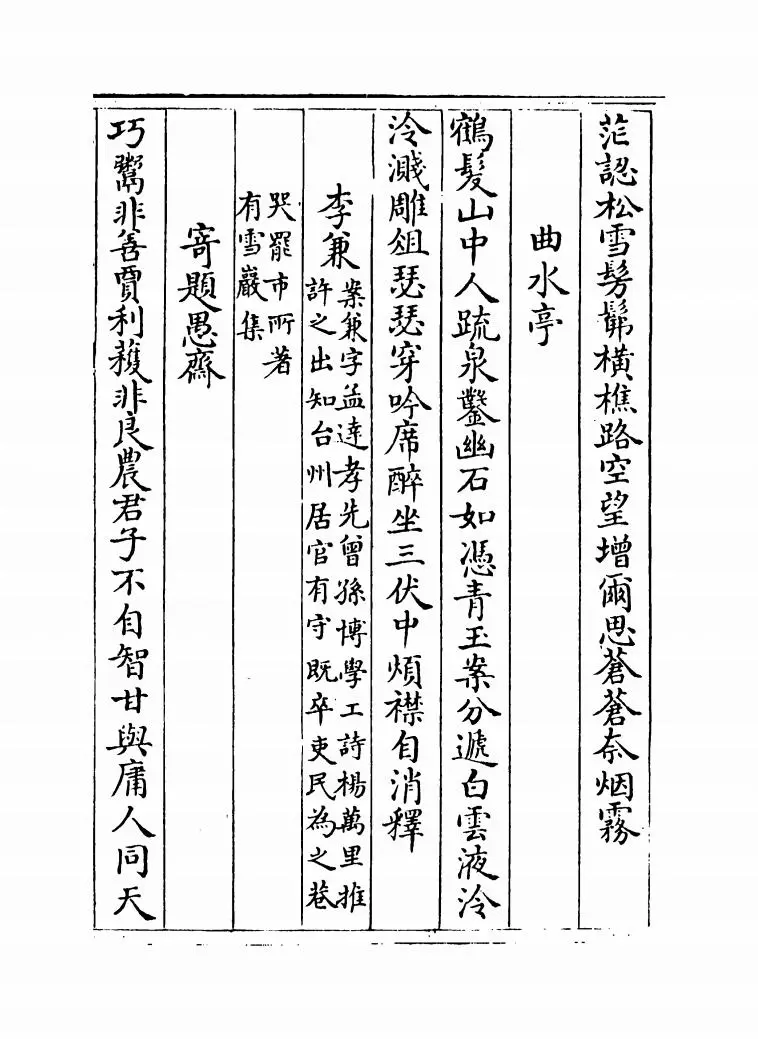 茫認松雪髣髴橫樵路空望增爾思蒼蒼奈烟霧
曲水亭
鶴髮山中人疏泉鑿幽石如憑青玉案分遞白雲液泠
泠濺雕俎瑟瑟穿吟席醉坐三伏中煩襟自消釋
李兼
案兼字孟達孝先曾孫博學工詩楊萬里推
許之出知台州居官有守既卒吏民為之巷
哭罷市所著
有雪巖集
寄題愚齋
巧鬻非善賈利穫非良農君子不自智甘與庸人同天